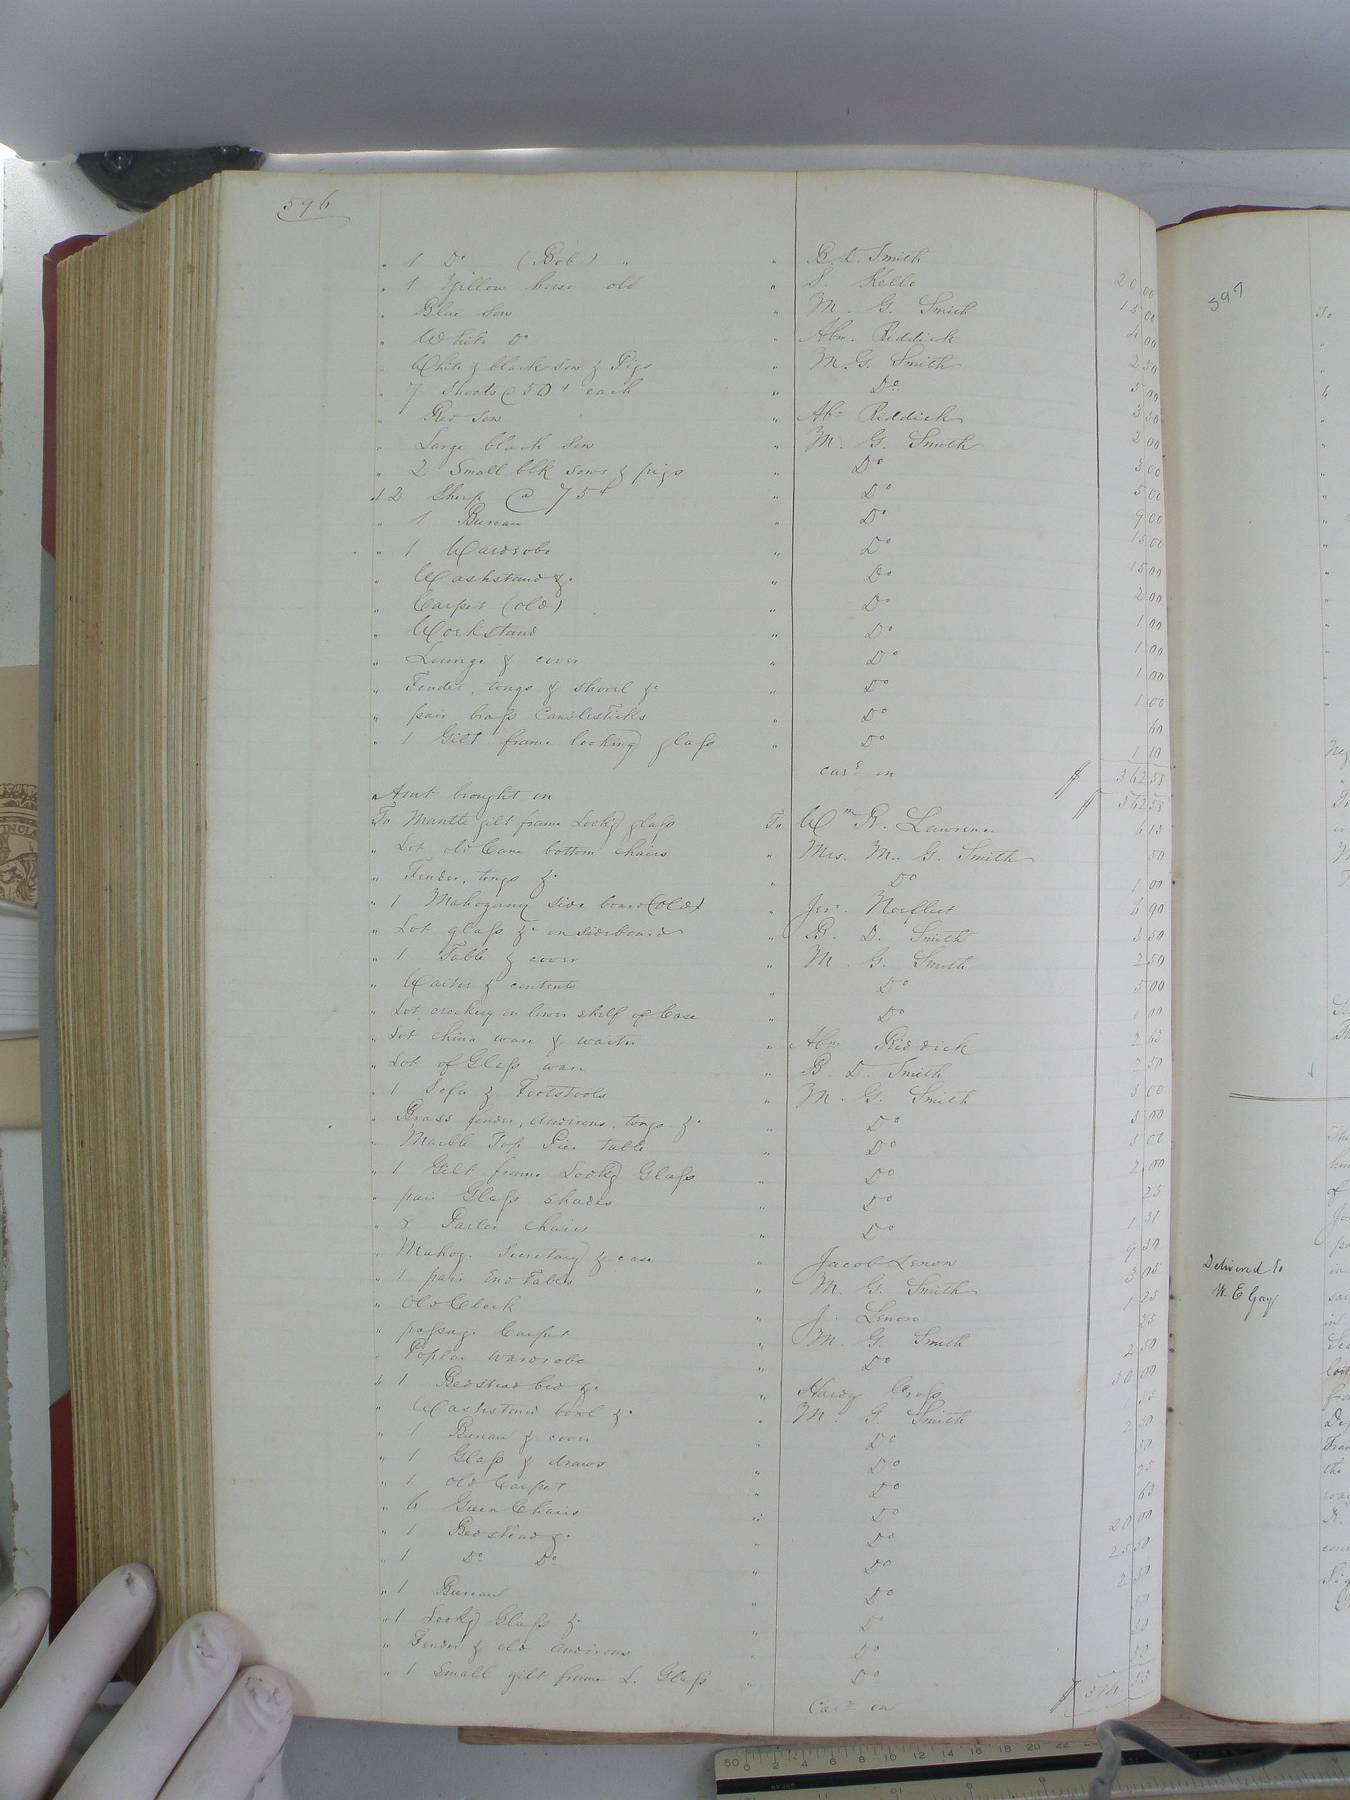 596
" 1 Do (Bob) " " B. D. Smith 20 00
" 1 Yillow horse old " S. Kello 15 00
" Blue Sow " M. G. Smith 4 00
" White Do " Abm. Riddick 2 50
" White & black Sow & Pigs " M. G. Smith 5 00
" 7 Shoats @ 50 ¢ each " Do 3 50
" Red Sow " Abm Riddick 2 00
" Large black Sow " M. G. Smith 3 00
" 2 Small blk Sows & pigs " Do 5 00
" 12 Sheep @ 75 ¢ " Do 9 00
" 1 Bureau " Do 15 00
" 1 Wardrobe " Do 15 00
" Washstand &c " Do 2 00
" Carpet (old) " Do 1 00
" Workstand " Do 1 00
" Lounge & cover " Do 1 00
" Fender, tongs & shovel &c " Do 1 00
" pair brass Candlesticks " Do 60
" 1 Gilt frame looking glass " Do 1 10
card on $ 362 58
" Amt brought on $ 362 58
To Mantle gilt frame Lookg glass To Wm R. Lawrence 6 13
" Lot old Cane bottom chairs " Mrs. M. G. Smith 50
" Fender, tongs &c " Do 1 00
" 1 Mahogany Side board (old) " Norfleet 6 90
" Lot glass &c in sideboard " B. D. Smith 3 50
" 1 Table & cover " M. G. Smith 2 50
" Waiter & contents " Do 5 00
" Lot crockery on lower shelf of Case " Do 1 00
" Lot china ware & waiter " Abm Riddick 2 63
" Lot of Glass ware " B. D. Smith 2 50
" 1 Sofa & Footstools " M. G. Smith 5 00
" Brass fender, Andirons, tongs &c " Do 5 00
" Marble Top Pier table " Do 5 00
" 1 Gilt frame Lookg Glass " Do 2 00
" pair Glass shades " Do 25
" 8 Parlor chairs " Do 1
" Mahog. Secretary & case " Jacob Lenow 9 50
" 1 pair End Tables " M. G. Smith 3 05
" Old Clock " J. Lenow 1 25
" passage Carpet " M. G. Smith 25
" Poplar Wardrobe " Do 2 50
" 1 Bedstead bed &c " Hardy Cross 30 00
" Washstand bowl &c " M. G. Smith 1
" 1 Bureau & cover " Do 2 50
" 1 Glass & draws " Do 50
" 1 Old Carpet " Do 25
" 6 Green Chairs " Do 63
" 1 Bedstead &c " Do 20 00
" 1 Do Do " Do 25 50
" 1 Bureau " Do 2 50
" 1 Lookg Glass &c " Do 50
" Fender & old Andirons " Do 50
" 1 Small gilt frame L. Glass " Do 50
Card on $
597
Delivered to
W. E Gay